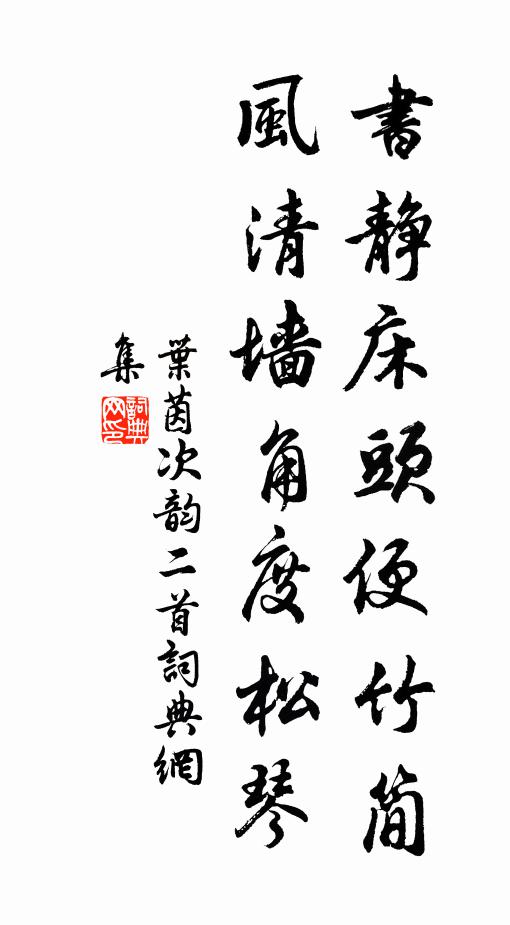 書静床頭便竹簡
風清墙角度松琴
葉茵次韵二首詞典網
集
詞典
网印